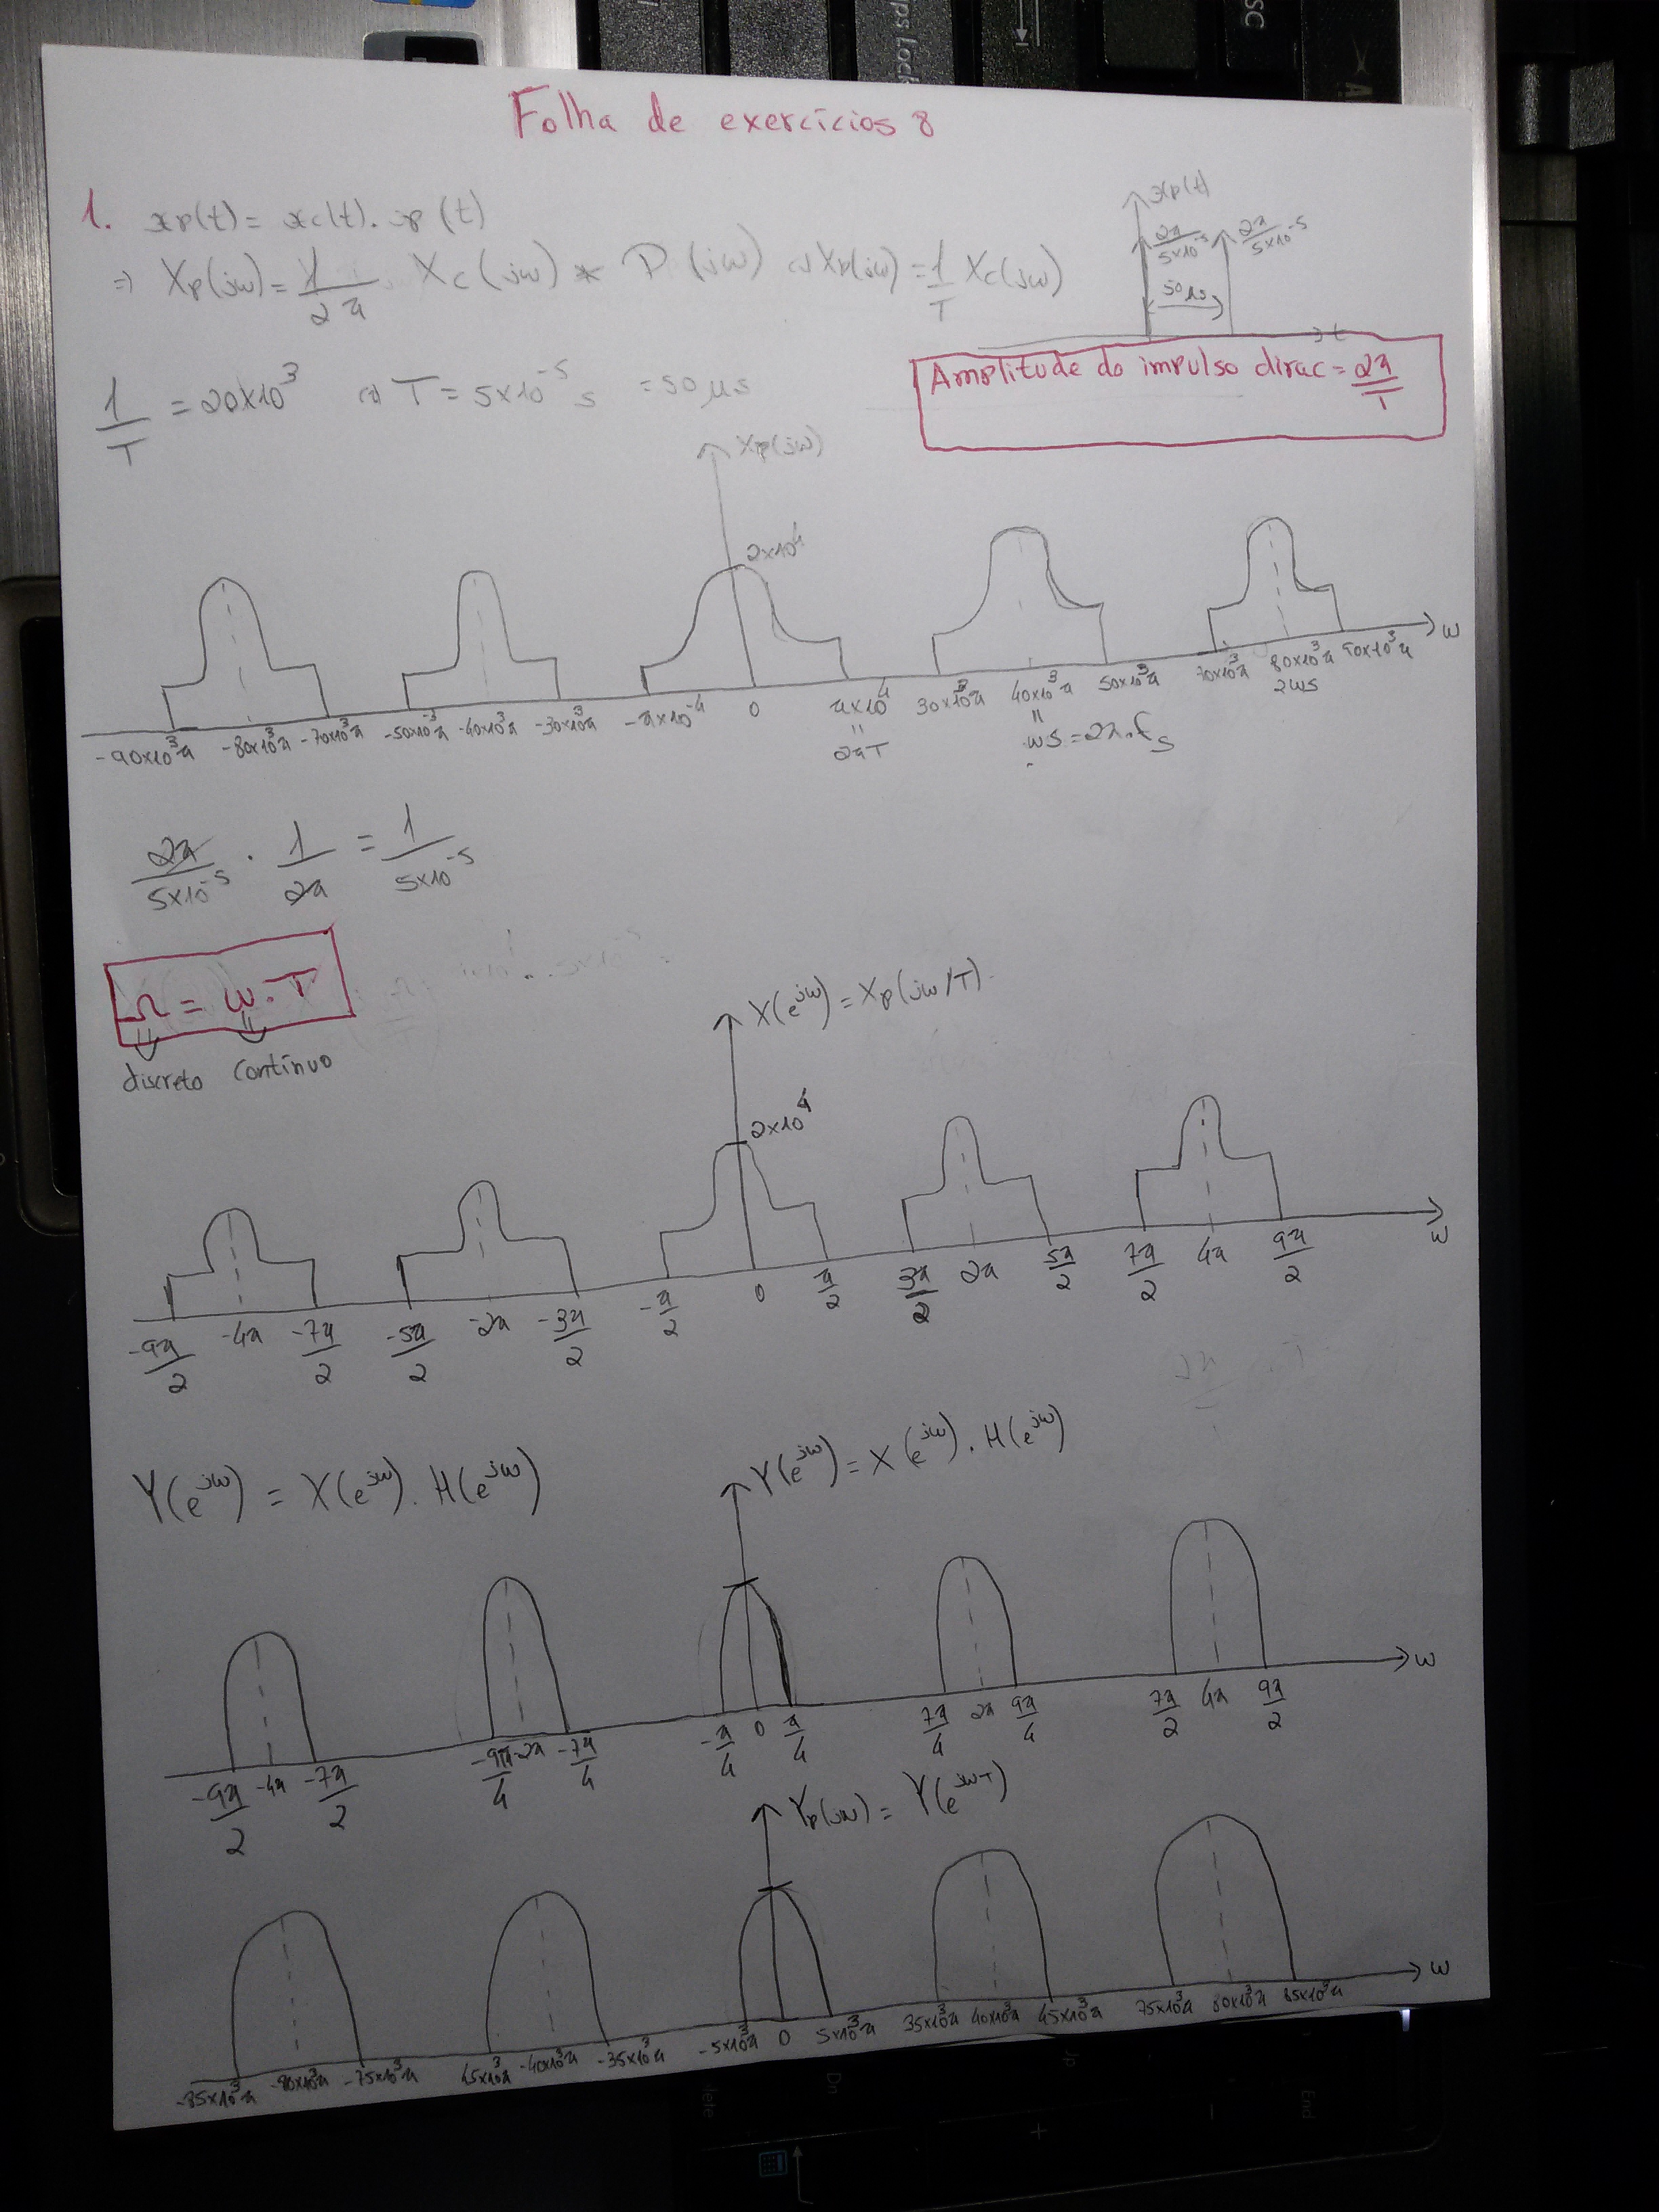 Folha de exercícios 8
1. xp(t) = xc(t). p(t)
⇒ Xp(jω) = 1/2π Xc(jω) * P(jω) ⇔ Xp(jω) = 1/T Xc(jω)
xp(t)
2π/5×10^-5 2π/5×10^-5
50μs
t
1/T = 20×10^3 ⇔ T = 5×10^-5 s = 50 μs
Amplitude do impulso dirac = 2π/T
Xp(jω)
2×10^4
ω
-90×10^3π -80×10^3π -70×10^3π -50×10^3π -40×10^3π -30×10^3π -π×10^4 0 π×10^4 30×10^3π 40×10^3π 50×10^3π 70×10^3π 80×10^3π 90×10^3π
= 2πT = ωs = 2π.fs 2ωs
2π/5×10^-5 . 1/2π = 1/5×10^-5
Ω = ω.T
discreto contínuo
X(e^jω) = Xp(jω/T)
2×10^4
ω
-9π/2 -4π -7π/2 -5π/2 -2π -3π/2 -π/2 0 π/2 3π/2 2π 5π/2 7π/2 4π 9π/2
Y(e^jω) = X(e^jω). H(e^jω)
Y(e^jω) = X(e^jω). H(e^jω)
ω
-9π/2 -4π -7π/2 -9π/4 -2π -7π/4 -π/4 0 π/4 7π/4 2π 9π/4 7π/2 4π 9π/2
Yp(jω) = Y(e^jωT)
ω
-85×10^3π -80×10^3π -75×10^3π 45×10^3π -40×10^3π -35×10^3π -5×10^3π 0 5×10^3π 35×10^3π 40×10^3π 45×10^3π 75×10^3π 80×10^3π 85×10^3π
ps Lock
SC
Dn
End